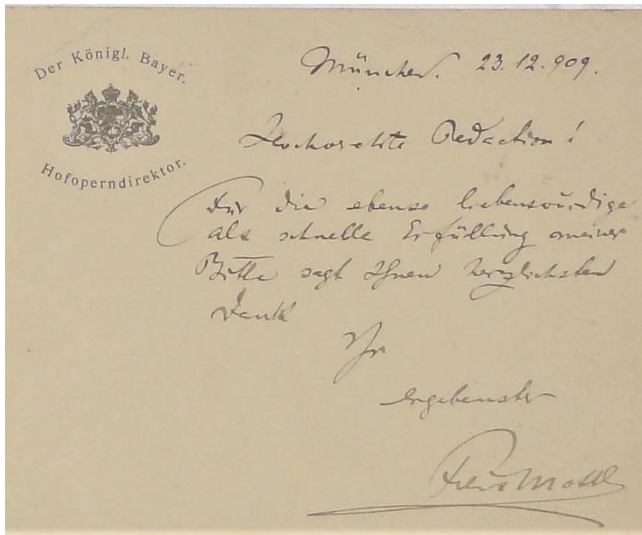 Der Königl. Bayer.
Hofoperndirektor.
München. 23.12.909.
Hochverehrte Redaction!
Für die ebenso liebenswürdige
als schnelle Erfüllung meiner
Bitte sagt Ihnen herzlichsten
Dank
Ihr
ergebenster
Felix Mottl